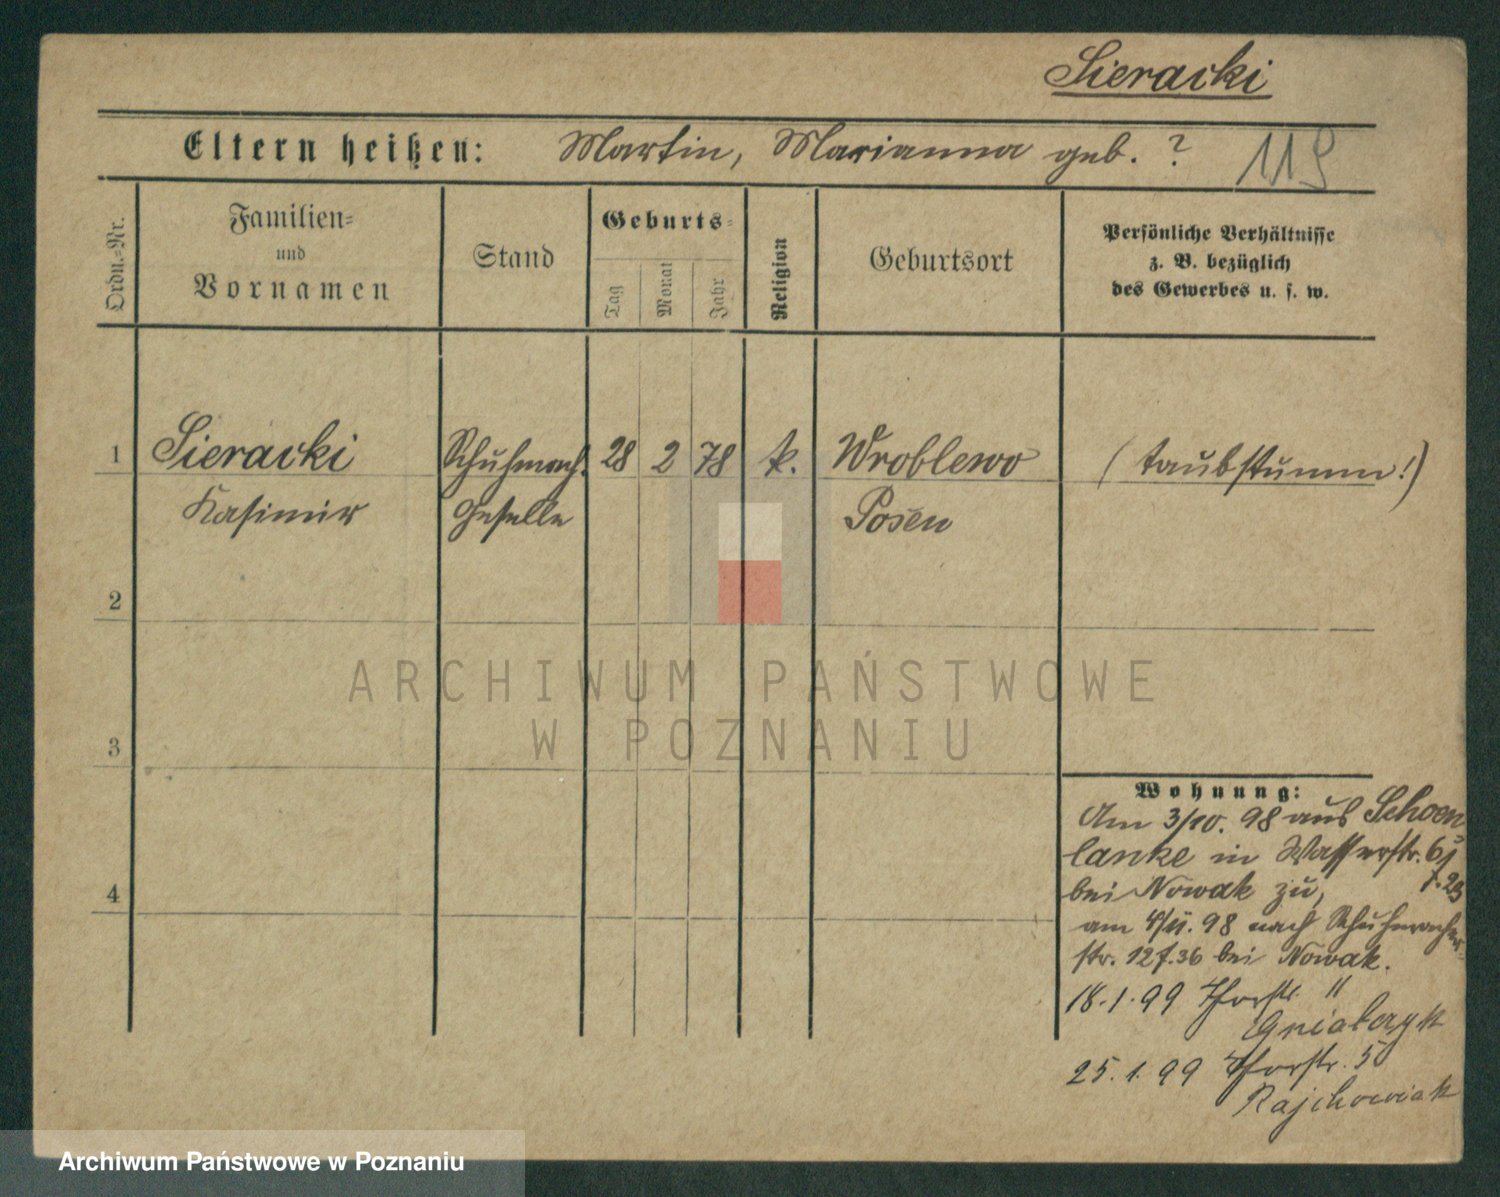 Sieracki
Eltern heißen: Martin, Marianna geb. ? 119
Ordn.=Nr.
Familien=
und
Vornamen
Stand
Geburts=
Tag
Monat
Jahr
Religion
Geburtsort
Persönliche Verhältnisse
z. B. bezüglich
des Gewerbes u. s. w.
1 Sieracki Schuhmach. 28 2 78 k. Wroblewo (taubstumm!)
Kasimir Geselle Posen
2
3
4
ARCHIWUM PAŃSTWOWE
W POZNANIU
Wohnung:
Am 3/10. 98 aus Schoen
lanke in Wasserstr. 6
bei Nowak zu,
am 4/11. 98 nach Schuhmacher
str. 12 f. 36 bei Nowak.
18.1.99 Thorstr. 11
25.1.99 Thorstr. 5
Rajchowiak
Archiwum Państwowe w Poznaniu